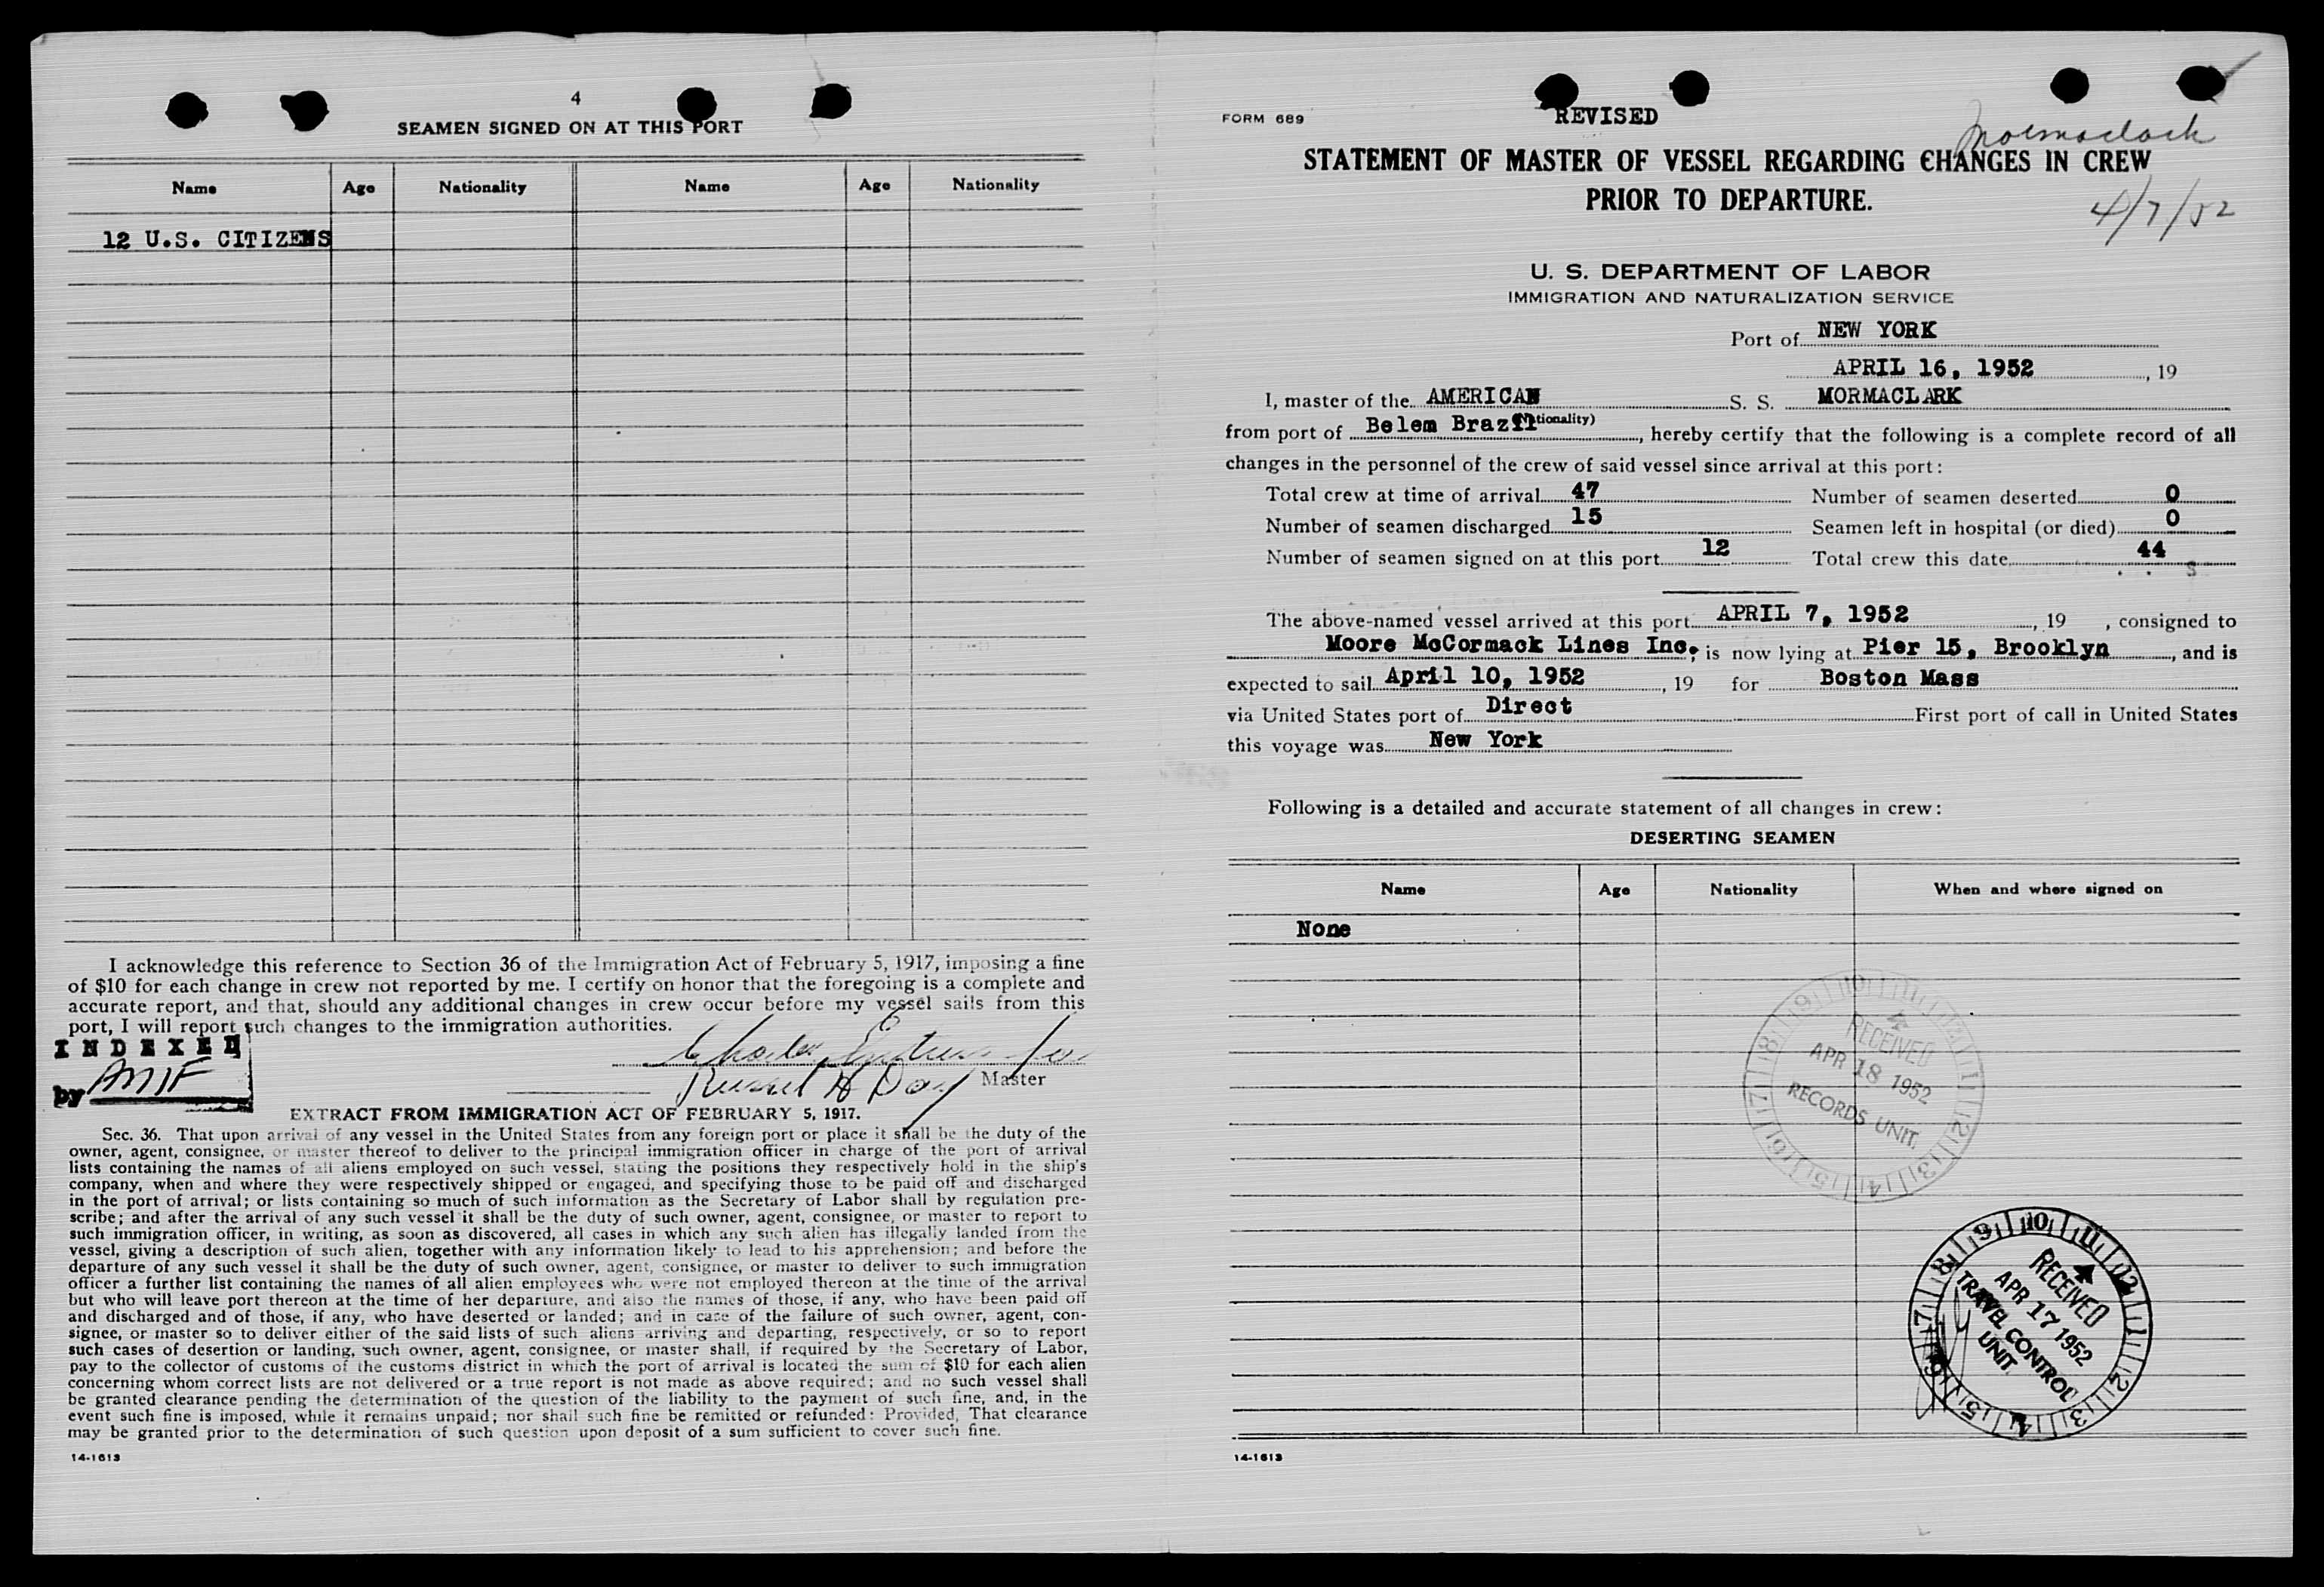 4
SEAMEN SIGNED ON AT THIS PORT
Name Age Nationality Name Age Nationality
12 U.S. CITIZENS
I acknowledge this reference to Section 36 of the Immigration Act of February 5, 1917, imposing a fine
of $10 for each change in crew not reported by me. I certify on honor that the foregoing is a complete and
accurate report, and that, should any additional changes in crew occur before my vessel sails from this
port, I will report such changes to the immigration authorities.
INDEXED
by AMF
Charles for
Russel H Day Master
EXTRACT FROM IMMIGRATION ACT OF FEBRUARY 5, 1917.
Sec. 36. That upon arrival of any vessel in the United States from any foreign port or place it shall be the duty of the
owner, agent, consignee, or master thereof to deliver to the principal immigration officer in charge of the port of arrival
lists containing the names of all aliens employed on such vessel, stating the positions they respectively hold in the ship's
company, when and where they were respectively shipped or engaged, and specifying those to be paid off and discharged
in the port of arrival; or lists containing so much of such information as the Secretary of Labor shall by regulation pre-
scribe; and after the arrival of any such vessel it shall be the duty of such owner, agent, consignee, or master to report to
such immigration officer, in writing, as soon as discovered, all cases in which any such alien has illegally landed from the
vessel, giving a description of such alien, together with any information likely to lead to his apprehension; and before the
departure of any such vessel it shall be the duty of such owner, agent, consignee, or master to deliver to such immigration
officer a further list containing the names of all alien employees who were not employed thereon at the time of the arrival
but who will leave port thereon at the time of her departure, and also the names of those, if any, who have been paid off
and discharged and of those, if any, who have deserted or landed; and in case of the failure of such owner, agent, con-
signee, or master so to deliver either of the said lists of such aliens arriving and departing, respectively, or so to report
such cases of desertion or landing, such owner, agent, consignee, or master shall, if required by the Secretary of Labor,
pay to the collector of customs of the customs district in which the port of arrival is located the sum of $10 for each alien
concerning whom correct lists are not delivered or a true report is not made as above required; and no such vessel shall
be granted clearance pending the determination of the question of the liability to the payment of such fine, and, in the
event such fine is imposed, while it remains unpaid; nor shall such fine be remitted or refunded: Provided, That clearance
may be granted prior to the determination of such question upon deposit of a sum sufficient to cover such fine.
14-1613
FORM 689 REVISED
Mormaclark
STATEMENT OF MASTER OF VESSEL REGARDING CHANGES IN CREW
PRIOR TO DEPARTURE.
4/7/52
U. S. DEPARTMENT OF LABOR
IMMIGRATION AND NATURALIZATION SERVICE
Port of NEW YORK
APRIL 16, 1952, 19
I, master of the AMERICAN S. S. MORMACLARK
(Nationality)
from port of Belem Brazil, hereby certify that the following is a complete record of all
changes in the personnel of the crew of said vessel since arrival at this port:
Total crew at time of arrival 47 Number of seamen deserted 0
Number of seamen discharged 15 Seamen left in hospital (or died) 0
Number of seamen signed on at this port 12 Total crew this date 44
The above-named vessel arrived at this port APRIL 7, 1952, 19 , consigned to
Moore McCormack Lines Inc., is now lying at Pier 15, Brooklyn, and is
expected to sail April 10, 1952, 19 for Boston Mass
via United States port of Direct First port of call in United States
this voyage was New York
Following is a detailed and accurate statement of all changes in crew:
DESERTING SEAMEN
Name Age Nationality When and where signed on
None
RECEIVED
APR 18 1952
RECORDS UNIT.
RECEIVED
APR 17 1952
TRAVEL CONTROL
UNIT.
14-1613